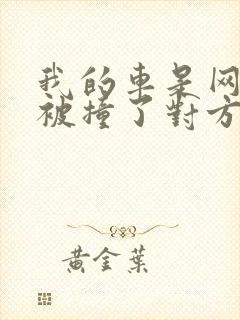 我的車是网
被撞了對方
黃金葉